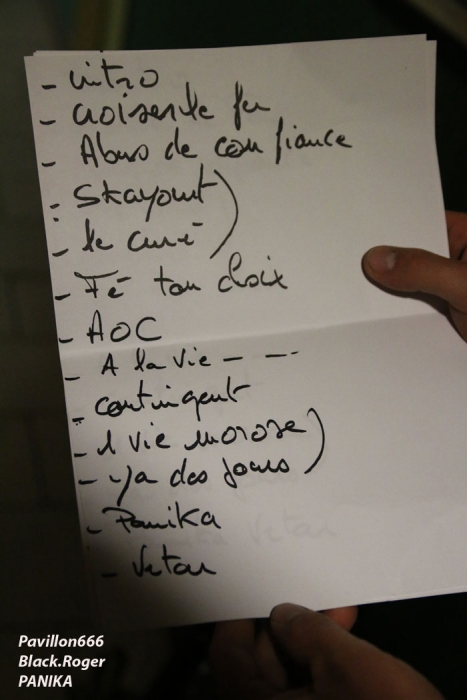 - intro
- croiser le fer
- Abus de confiance
- Skayout
- le curé
- Fé ton choix
- AOC
- A la vie - - -
- contingent
- 1 vie morose
- ya des jours
- Panika
- Vetar
Pavillon666
Black.Roger
PANIKA